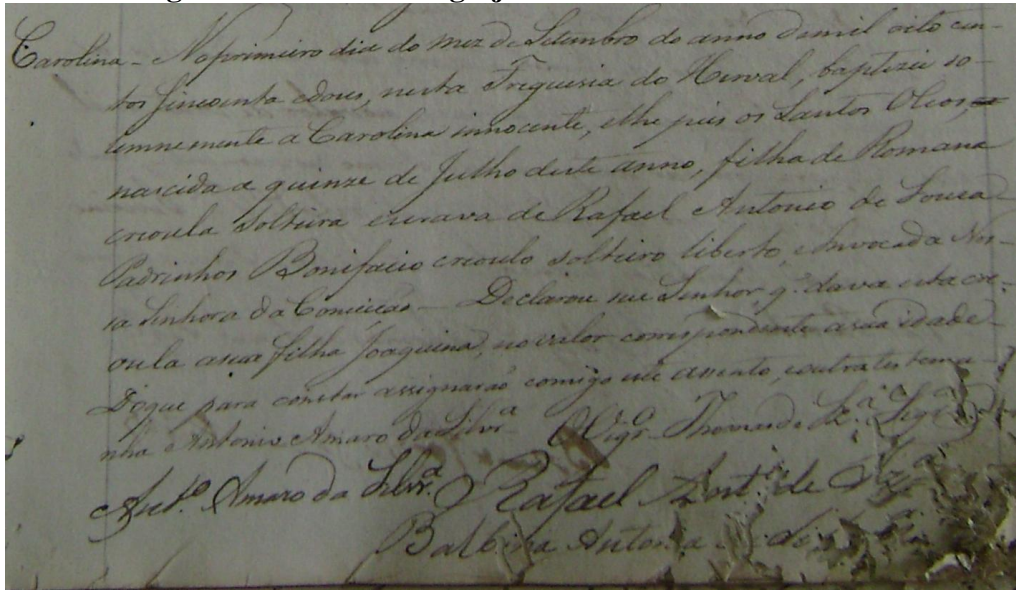 Carolina - No primeiro dia do mez de Setembro do anno de mil oito cen-
tos sincoenta edous, nesta Freguesia do Herval, baptizei so-
lemnemente a Carolina innocente, elhe puis os Santos Oleos,
nascida a quinze de Julho deste anno, filha de Romana
crioula solteira escrava de Rafael Antonio de Souza
Padrinhos Bonifacio crioulo solteiro liberto, e Invocada Nos-
sa Senhora da Conceicão - Declarou seu Senhor, q. dava esta cri-
oula a sua filha Joaquina, no valor correspondente a sua idade
Do que para constar assignarão comigo este assento, e outra testemu-
nha Antonio Amaro da Silvrª O Vigrº Thomas de
Antº Amaro da Silvrª Rafael Antº de
Balbina Antonia